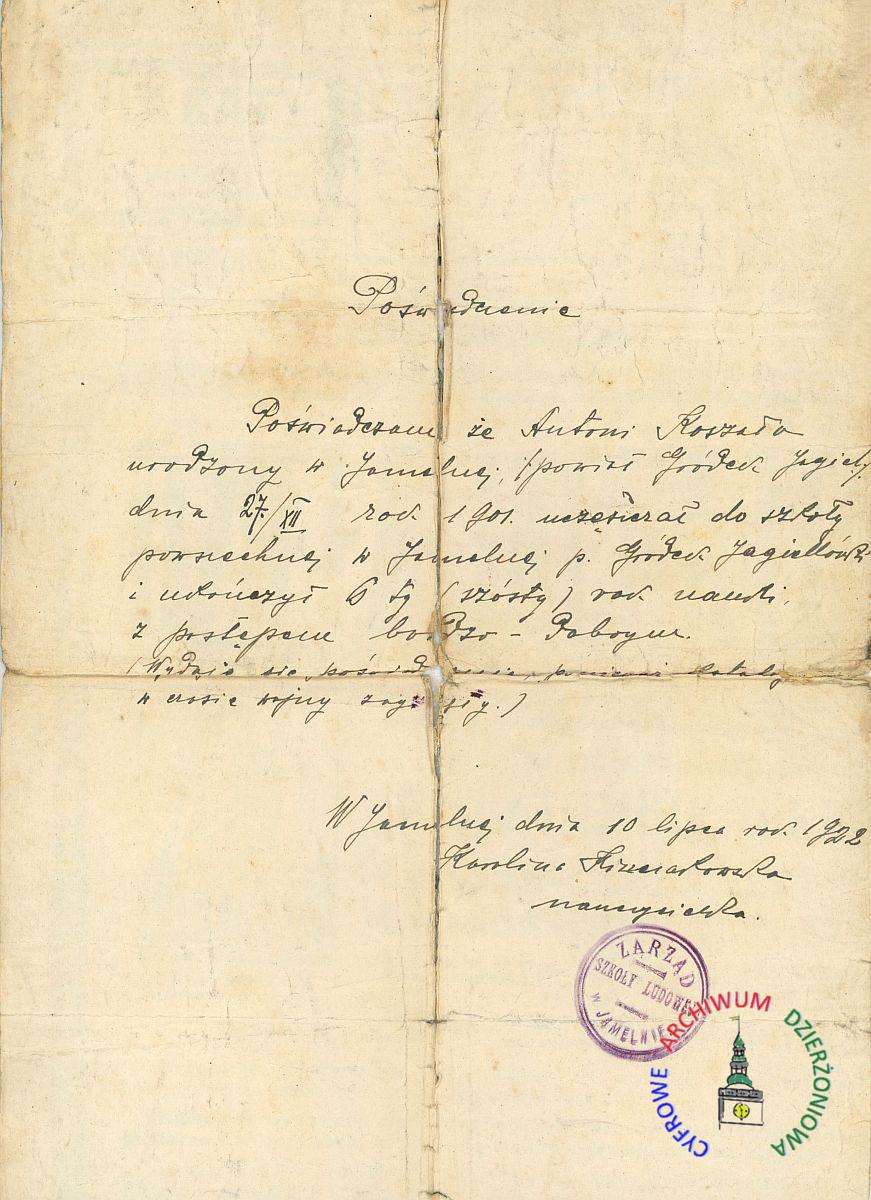 Poświadczenie
Poświadczam że Antoni Koszała
urodzony w Jamelnej, (powiat Gródek Jagiel.)
dnia 27/XII rok 1901. uczęszczał do szkoły
powszechnej w Jamelnej p. Gródek Jagielloński
i ukończył 6 ty (szósty) rok nauki,
z postępem bardzo - dobrym.
(Wydaje się poświadczenie, ponieważ katalog
w czasie wojny
W Jamelnej dnia 10 lipca rok 1922
Karolina
nauczycielka.
ZARZĄD
SZKOŁY LUDOWEJ
W JAMELNIE
CYFROWE ARCHIWUM DZIERŻONIOWA